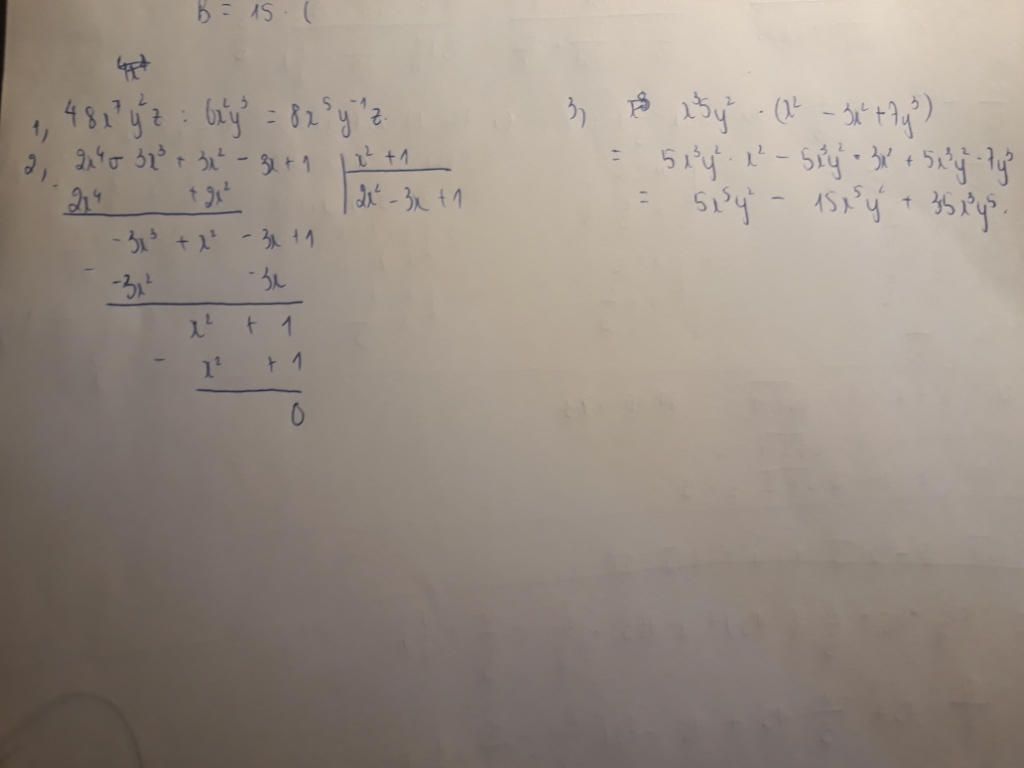 B = 15 . (
1, 48x⁷y²z : 6x²y³ = 8x⁵y⁻¹z.
2, 2x⁴ - 3x³ + 3x² - 3x + 1 | x² + 1
- 2x⁴ + 2x² | 2x² - 3x + 1
-3x³ + x² - 3x + 1
- -3x² -3x
x² + 1
- x² + 1
0
3, x³5y² . (x² - 3x² + 7y³)
= 5x³y² . x² - 5x³y² . 3x² + 5x³y² . 7y³
= 5x⁵y² - 15x⁵y² + 35x³y⁵.